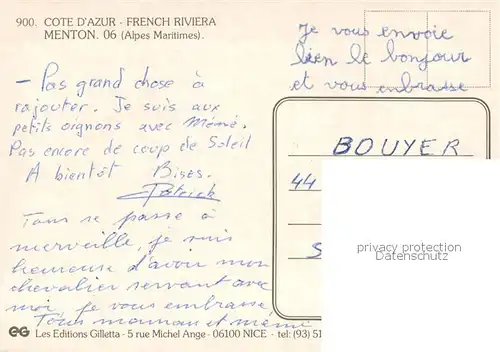 900. COTE D'AZUR - FRENCH RIVIERA
MENTON. 06 (Alpes Maritimes).
Je vous envoie
bien le bonjour
et vous embrasse
- Pas grand chose à
rajouter. Je suis aux
petits oignons avec Mémé.
Pas encore de coup de Soleil
A bientôt Bises.
Patrick
Tout se passe à
merveille, je suis
heureuse d'avoir mon
chevalier servant avec
moi, je vous embrasse
Tous maman et mémé
BOUYER
44
S
privacy protection
for personal data
EG Les Editions Gilletta - 5 rue Michel Ange - 06100 NICE - tel: (93) 51